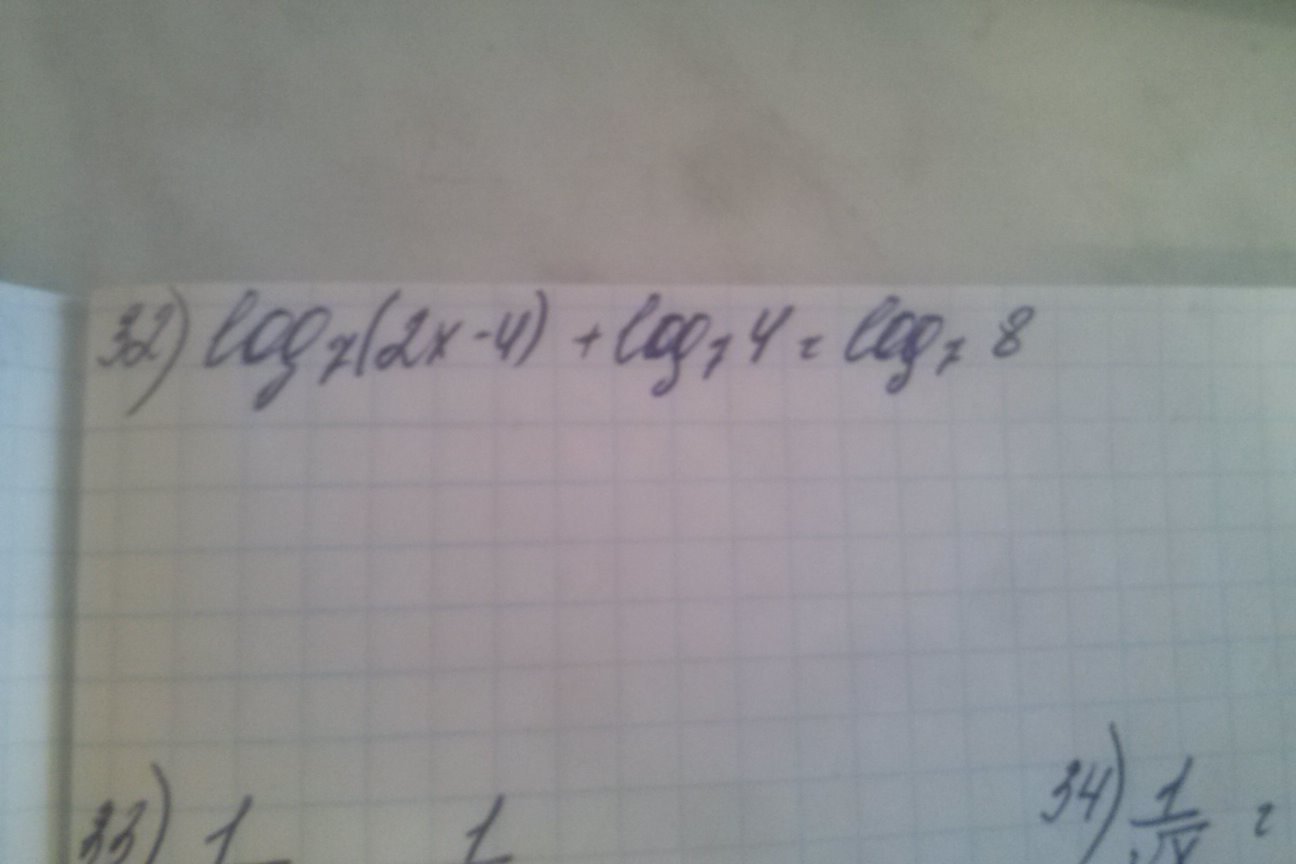 32) log₇(2x-4) + log₇ 4 = log₇ 8
33) 1 1
34) 1/√x =